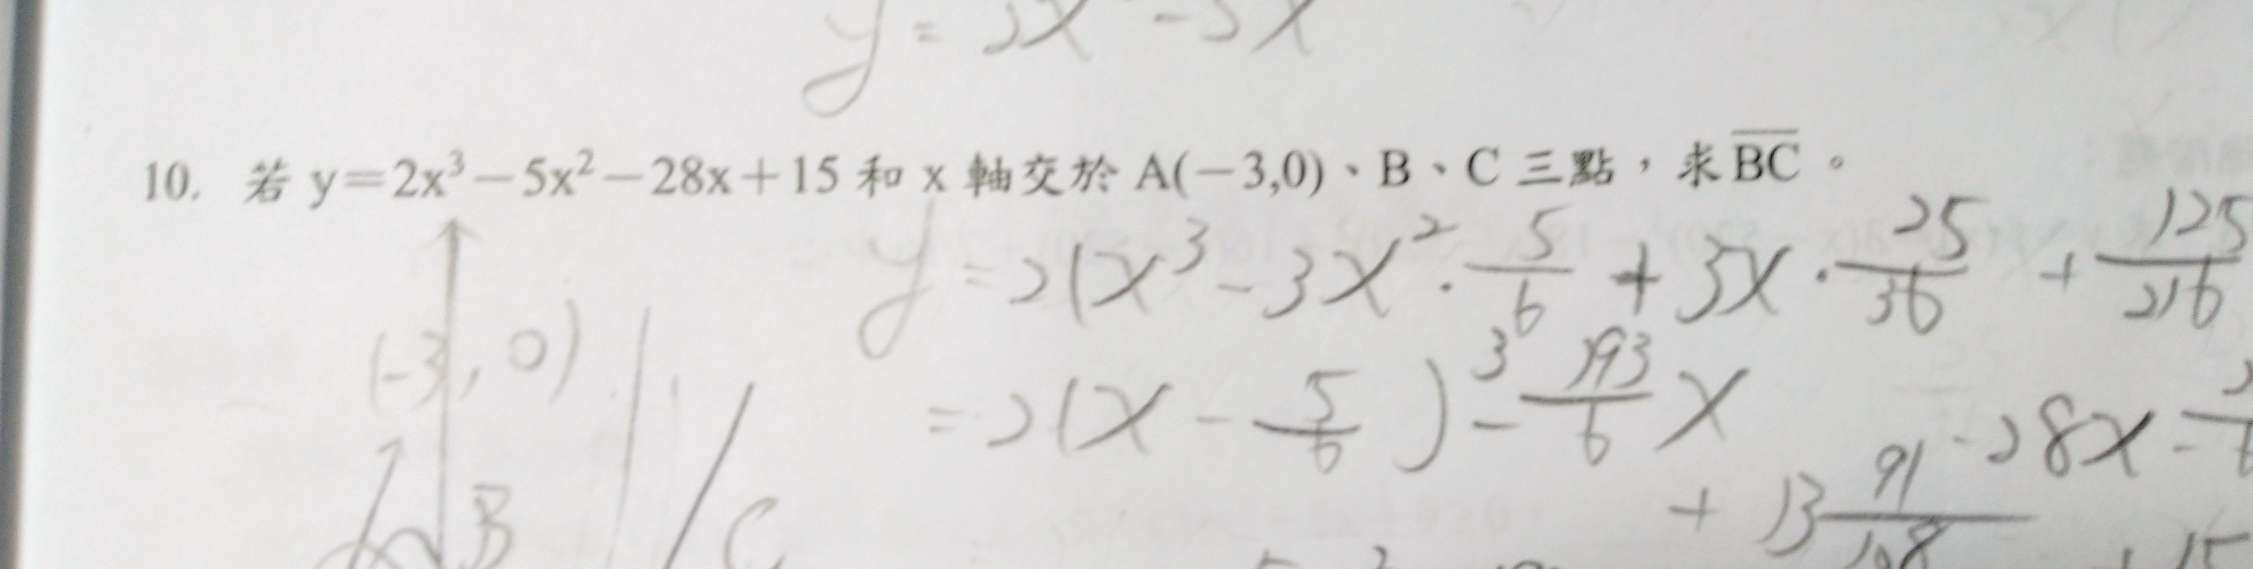 10. 若 y=2x³－5x²－28x＋15 和 x 軸交於 A(－3,0)、B、C 三點，求 BC。
y = 2(x³ - 3x² · 5/6 + 3x · 25/36 + 125/216
(-3, 0)
= 2(x - 5/6)³ - 193/6 x
- 28x -
+ 13 91/108
B
C
+ 15